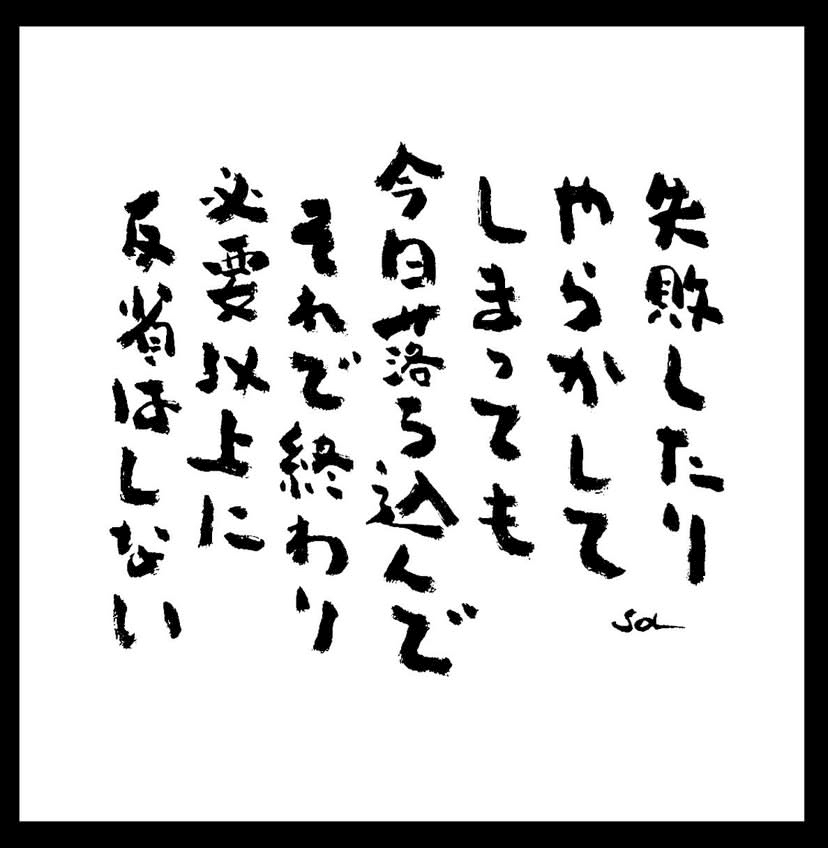 失敗したり
やらかして
しまっても
今日落ち込んで
それで終わり
必要以上に
反省はしない
sol